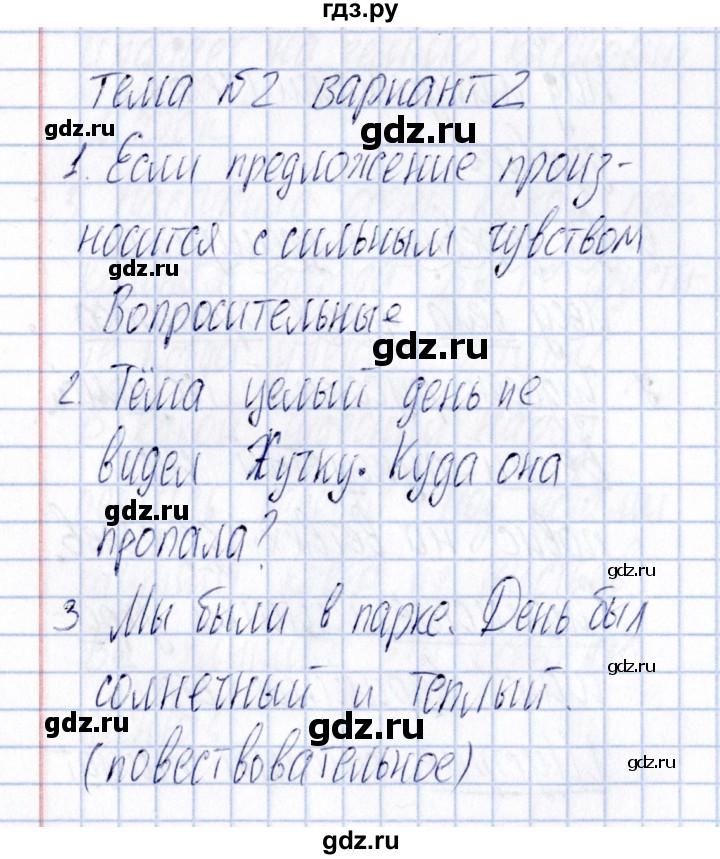 гдз.ру
тема №2 вариант 2
gdz.ru gdz.ru
1. Если предложение произ-
носится с сильным чувством
gdz.ru
Вопросительные
gdz.ru
2. Тёма целый день не
видел Жучку. Куда она
gdz.ru
пропала?
gdz.ru
3 Мы были в парке. День был
gdz.ru
солнечный и теплый.
gdz.ru gdz.ru
(повествовательное)
gdz.ru
gdz.ru